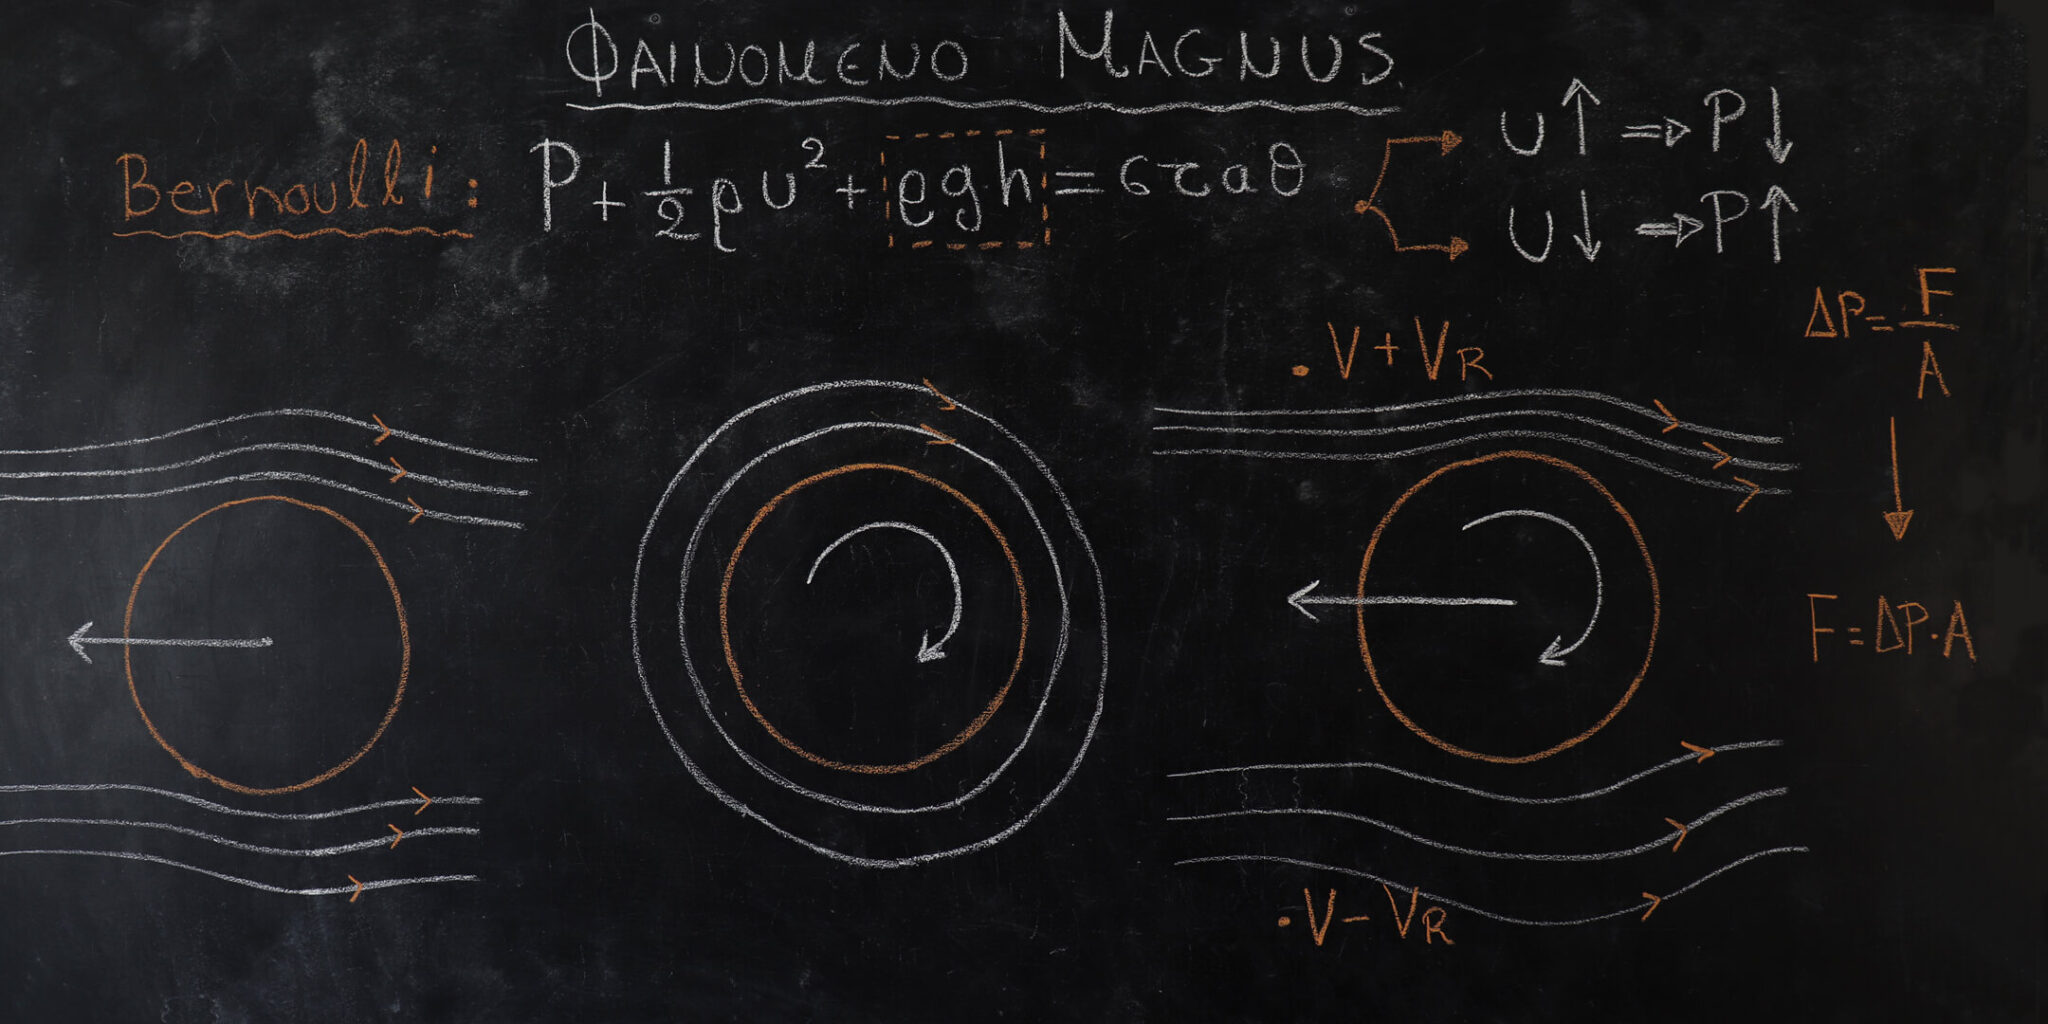 ΦΑΙΝΟΜΕΝΟ MAGNUS.
Bernoulli: P + 1/2 ρυ² + ρgh = σταθ
υ↑ ⇒ P↓
υ↓ ⇒ P↑
ΔP = F/A
• V + V_R
F = ΔP · A
• V - V_R